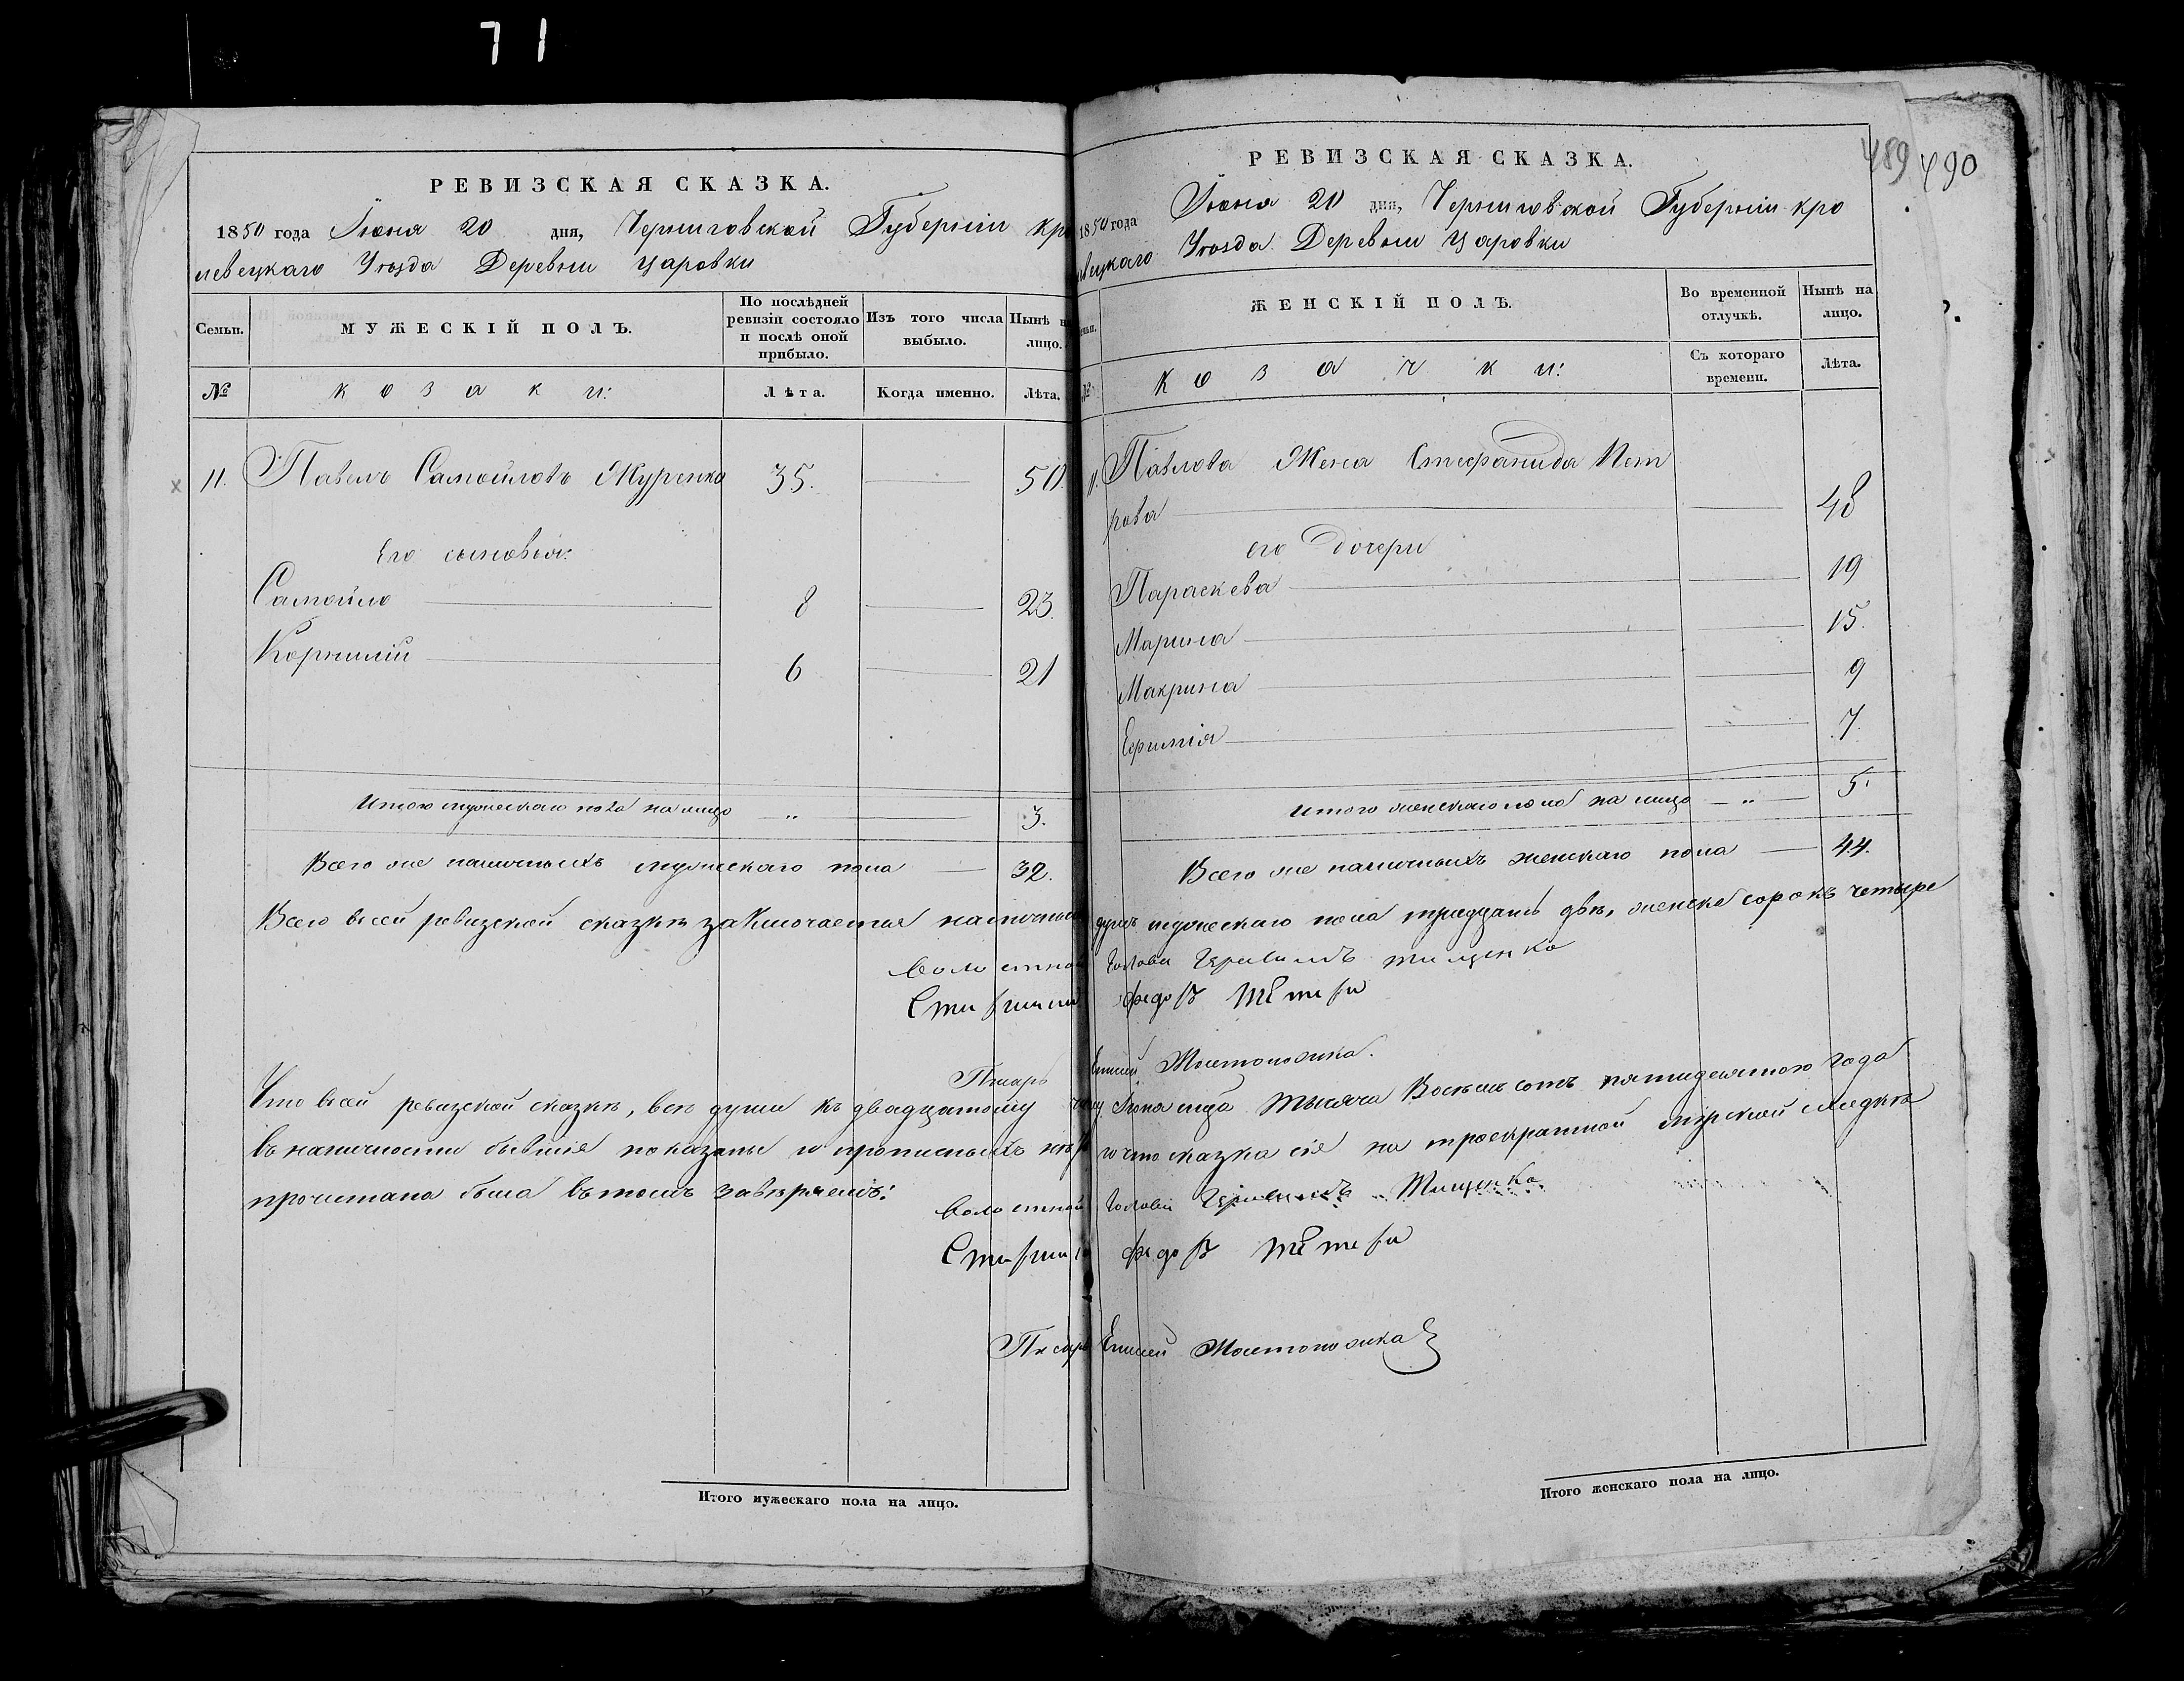 71
РЕВИЗСКАЯ СКАЗКА.
1850 года Июня 20 дня, Черниговской Губернии Кро
левецкаго Уѣзда Деревни Царовки
Семьи. МУЖЕСКІЙ ПОЛЪ. По послѣдней ревизіи состояло и послѣ оной прибыло. Изъ того числа выбыло. Нынѣ на лицо.
№ козаки: Лѣта. Когда именно. Лѣта.
11. Павелъ Самойловъ Журенко 35. 50.
Его сыновья:
Самойло 8 23.
Корнилій 6 21
Итого мужескаго пола на лицо — „ — 3.
Всего же наличныхъ мужескаго пола — 32.
489 490
РЕВИЗСКАЯ СКАЗКА.
1850 года Июня 20 дня, Черниговской Губернии Кро
левецкаго Уѣзда Деревни Царовки
Семьи. ЖЕНСКІЙ ПОЛЪ. Во временной отлучкѣ. Нынѣ на лицо.
№ козачки: Съ котораго времени. Лѣта.
11. Павлова Жена Стефанида Пет
рова 48
его дочери
Параскева 19
Марина 15.
Макрина 9
Ефимія 7.
Итого женскаго пола на лицо — „ — 5.
Всего же наличныхъ женскаго пола — 44.
Всего въ сей ревизской сказкѣ заключается наличныхъ душъ мужескаго пола тридцать двѣ, женска сорокъ четыре
Волостной Голова Тищенко
Федоръ Тетера
Писарь Мостоположка.
Что въ сей ревизской сказкѣ, всѣ души къ двадцатому числу Июня мца тысяча Восемьсотъ пятидесятого года
въ наличности бывшія показаны и прописныхъ нѣтъ и что сказка сія на троекратной мирской сходкѣ
прочитана была въ томъ завѣряемъ:
Волостной Голова Тищенко
Федоръ Тетера
Писарь Мостоположка
Итого мужескаго пола на лицо.
Итого женскаго пола на лицо.